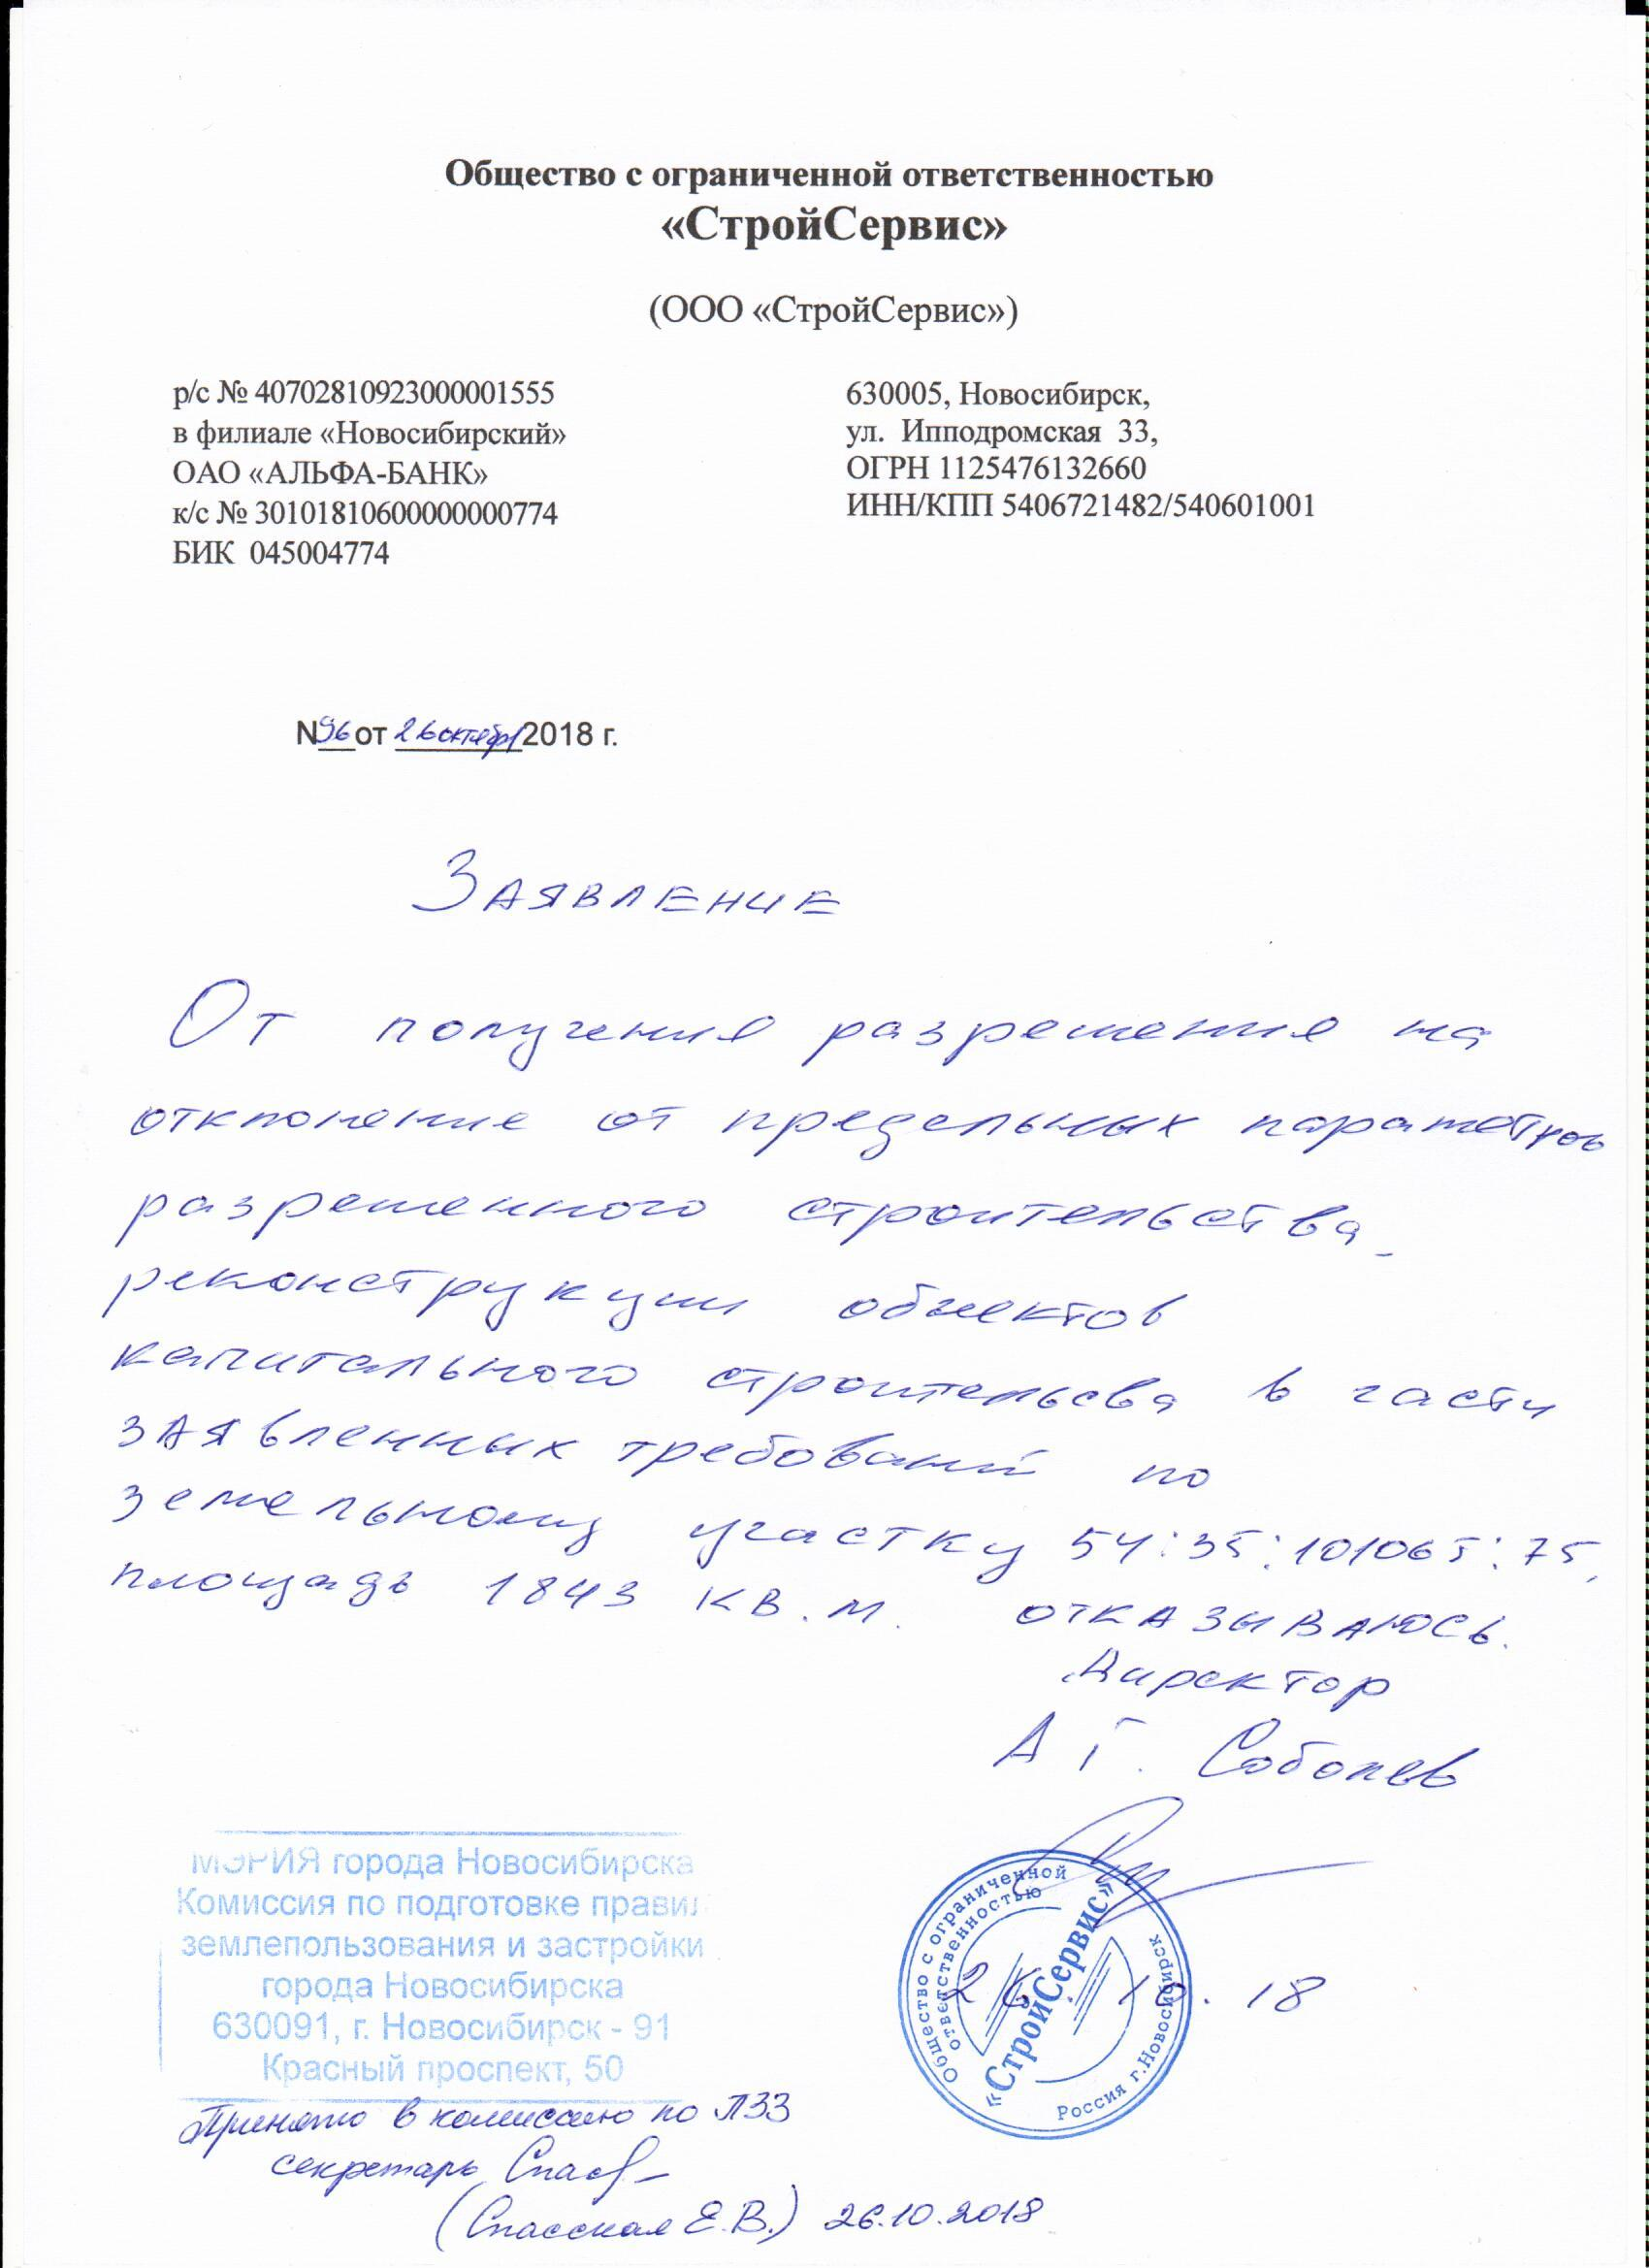 Общество с ограниченной ответственностью
«СтройСервис»
(ООО «СтройСервис»)
р/с № 40702810923000001555
в филиале «Новосибирский»
ОАО «АЛЬФА-БАНК»
к/с № 30101810600000000774
БИК 045004774
630005, Новосибирск,
ул. Ипподромская 33,
ОГРН 1125476132660
ИНН/КПП 5406721482/540601001
N 96 от 26 октября 2018 г.
Заявление
От получения разрешения на
отклонение от предельных параметров
разрешенного строительства,
реконструкции объектов
капитального строительсва в части
заявленных требований по
земельному участку 54:35:101065:75,
площадь 1843 кв.м. отказываюсь.
Директор
А Г. Соболев
26.10.18
Общество с ограниченной
ответственностью
«СтройСервис»
Россия г.Новосибирск
МЭРИЯ города Новосибирска
Комиссия по подготовке правил
землепользования и застройки
города Новосибирска
630091, г. Новосибирск - 91
Красный проспект, 50
Принято в комиссию по ПЗЗ
секретарь
(Спасская Е.В.) 26.10.2018